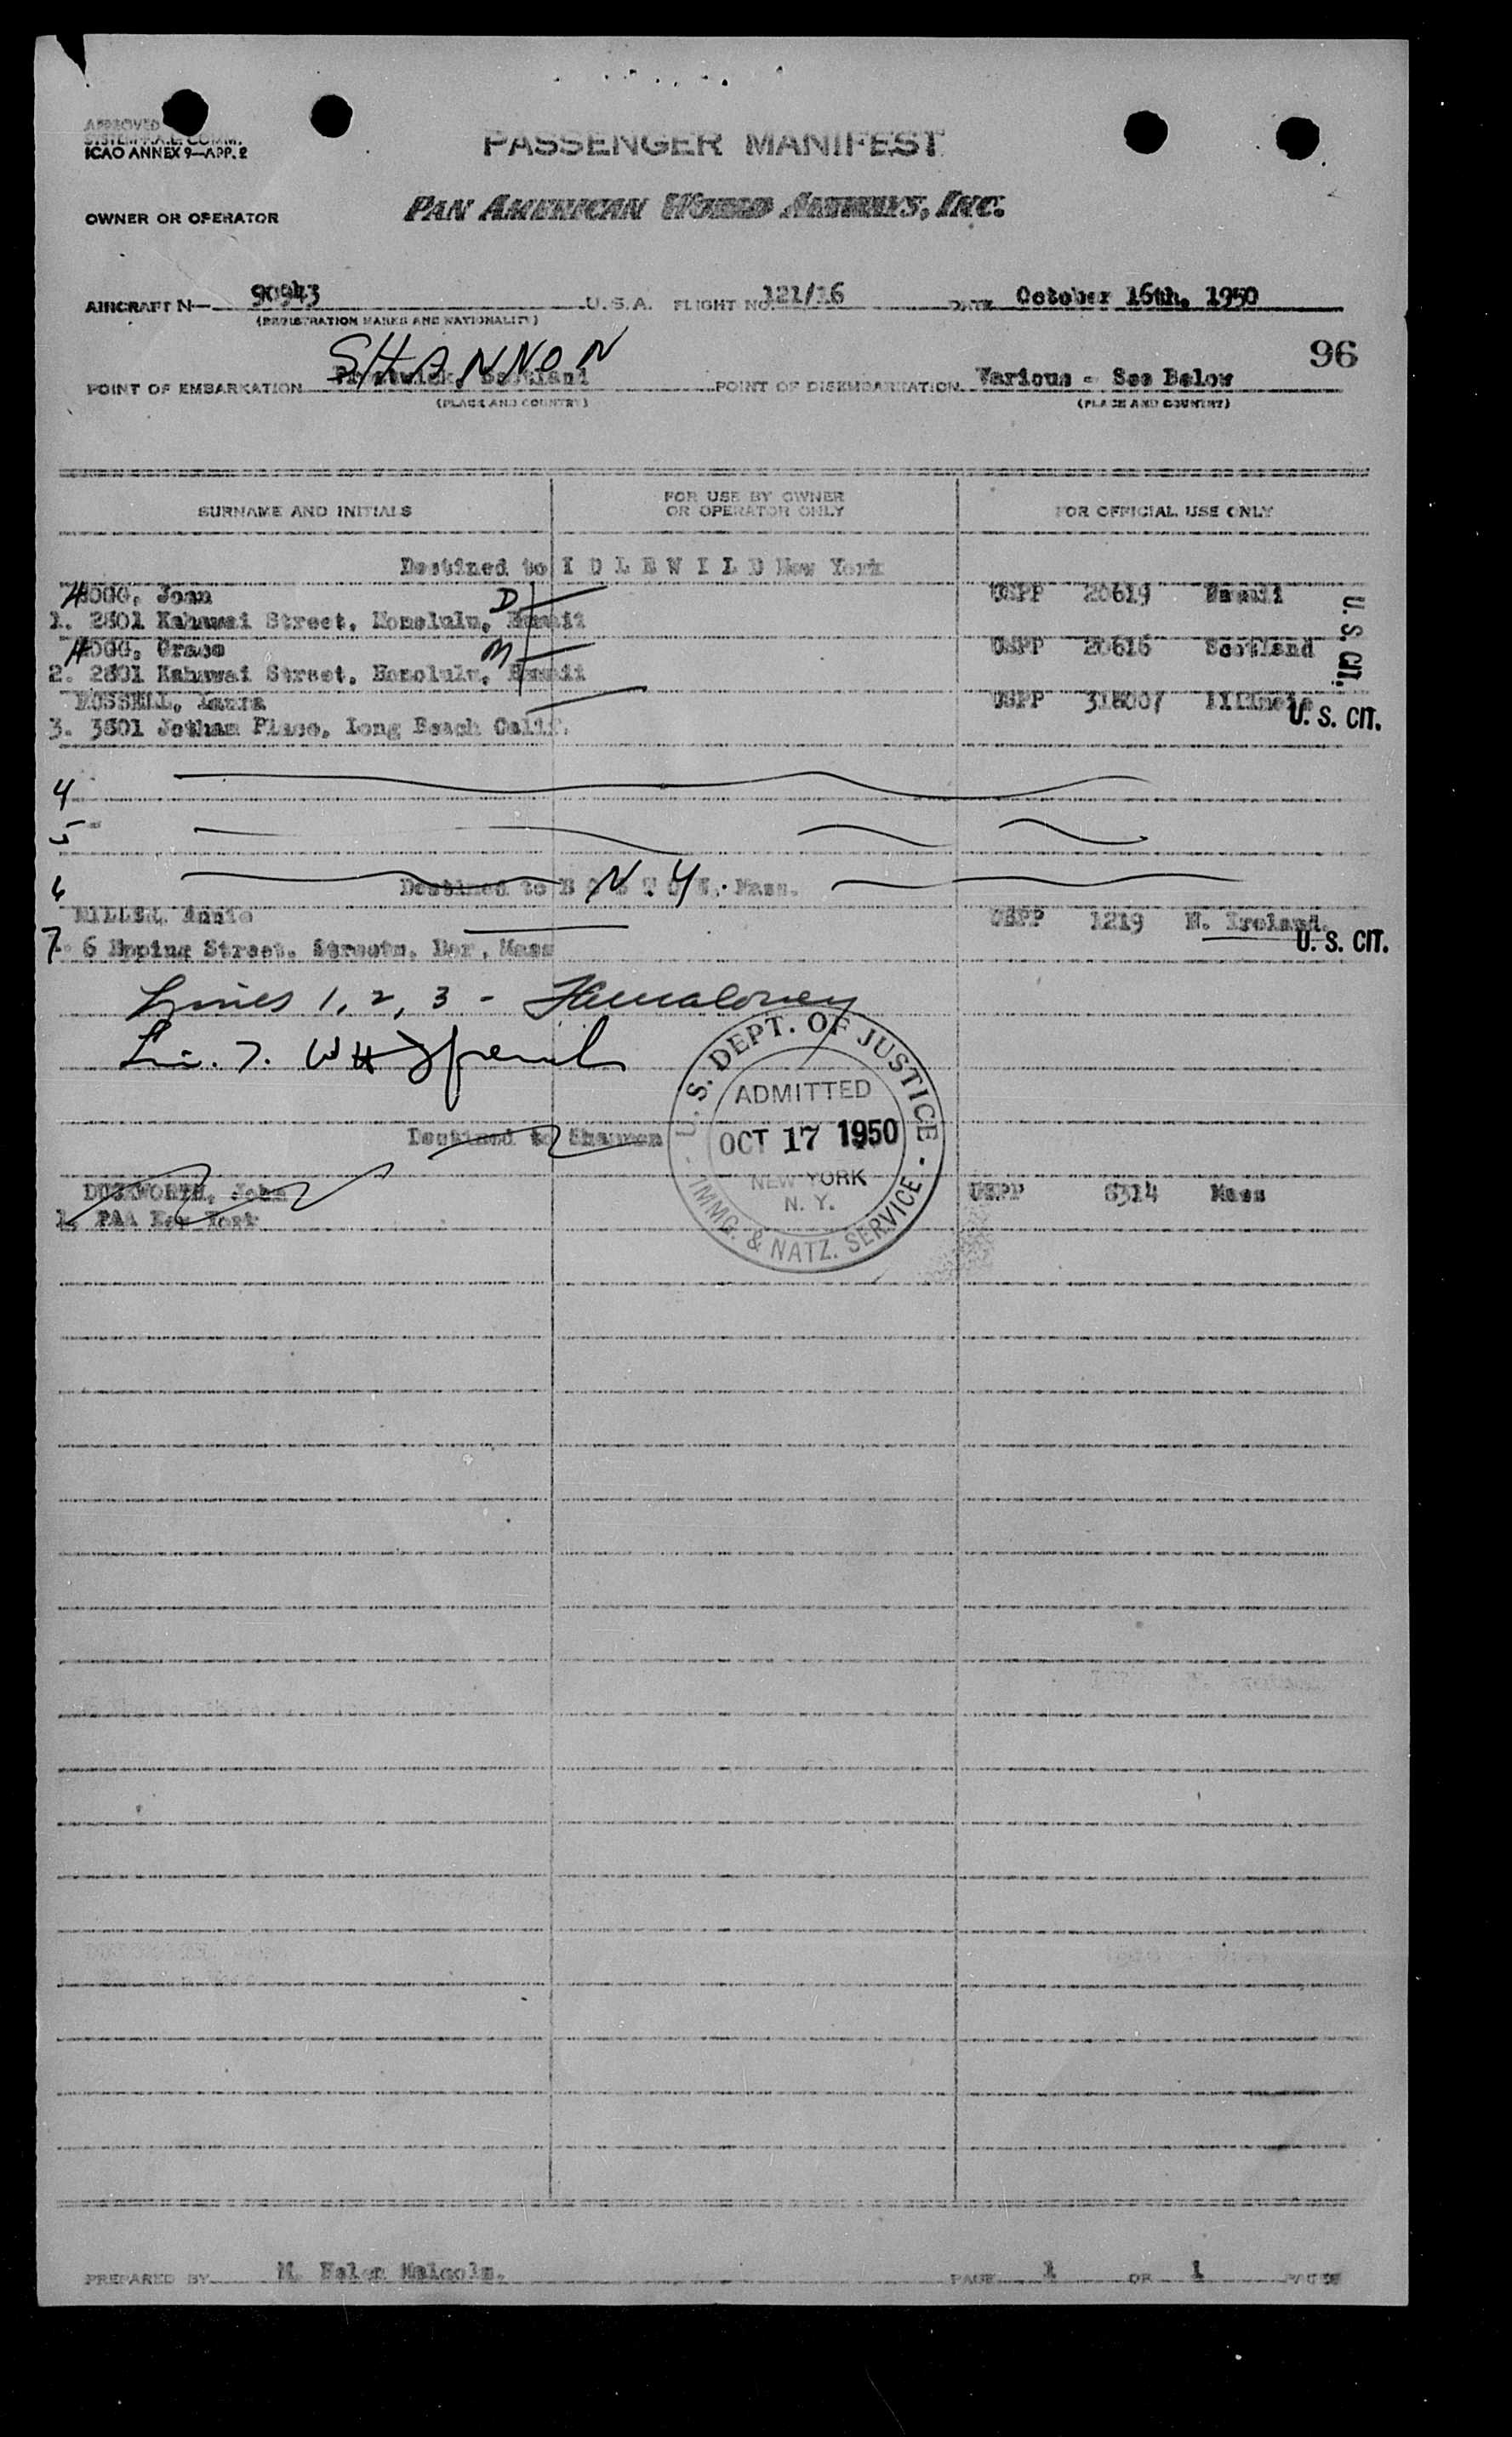 APPROVED
SYSTEM F.A.L. COMM.
ICAO ANNEX 9—APP. 2
PASSENGER MANIFEST
OWNER OR OPERATOR PAN AMERICAN WORLD AIRWAYS, INC.
AIRCRAFT N— 90943 U.S.A. FLIGHT NO. 121/16 DATE October 16th, 1950
(REGISTRATION MARKS AND NATIONALITY)
SHANNON
96
POINT OF EMBARKATION Prestwick, Scotland POINT OF DISEMBARKATION Various - See Below
(PLACE AND COUNTRY) (PLACE AND COUNTRY)
SURNAME AND INITIALS
FOR USE BY OWNER
OR OPERATOR ONLY
FOR OFFICIAL USE ONLY
Destined to I D L E W I L D New York
HOGG, Joan D USPP 20619 Hawaii
1. 2801 Kahawai Street, Honolulu, Hawaii
U. S. CIT.
HOGG, Grace M USPP 20616 Scotland
2. 2801 Kahawai Street, Honolulu, Hawaii
Laura USPP 318007 Illinois
3. 3801 Jotham Place, Long Beach Calif. U. S. CIT.
4
5
6 Destined to B O S T O N, Mass. N.Y.
MILLER, Annie USPP 1219 N. Ireland.
7. 6 Epping Street, Dor, Mass U. S. CIT.
Lines 1, 2, 3 -
Li. 7.
U. S. DEPT. OF JUSTICE
ADMITTED
OCT 17 1950
NEW YORK
N. Y.
IMMG. & NATZ. SERVICE
Destined to Shannon
DUCKWORTH, John USPP 6314 Mass
1. PAA New York
PREPARED BY M. Helen Malcolm. PAGE 1 OF 1 PAGES